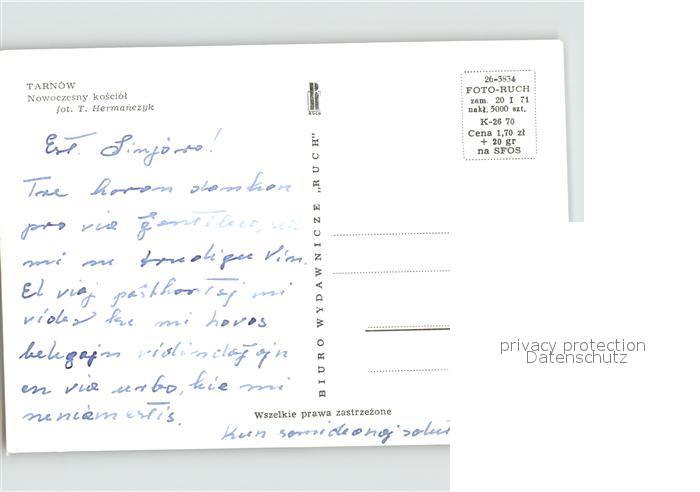 TARNÓW
Nowoczesny kościół
fot. T. Hermańczyk
Est. Sinjoro!
Tre koran dankon
pro via ĝentileco,
mi ne trudigu Vin.
El viaj poŝtkartoj mi
vidas ke mi havos
belegajn vidindaĵojn
en via urbo, kie mi
neniam estis.
Kun samideanoj salut
BIURO WYDAWNICZE „RUCH"
RUCH
26-3834
FOTO-RUCH
zam. 20 I 71
nakł. 5000 szt.
K-26 70
Cena 1,70 zł
+ 20 gr
na SFOS
Wszelkie prawa zastrzeżone
privacy protection
Datenschutz